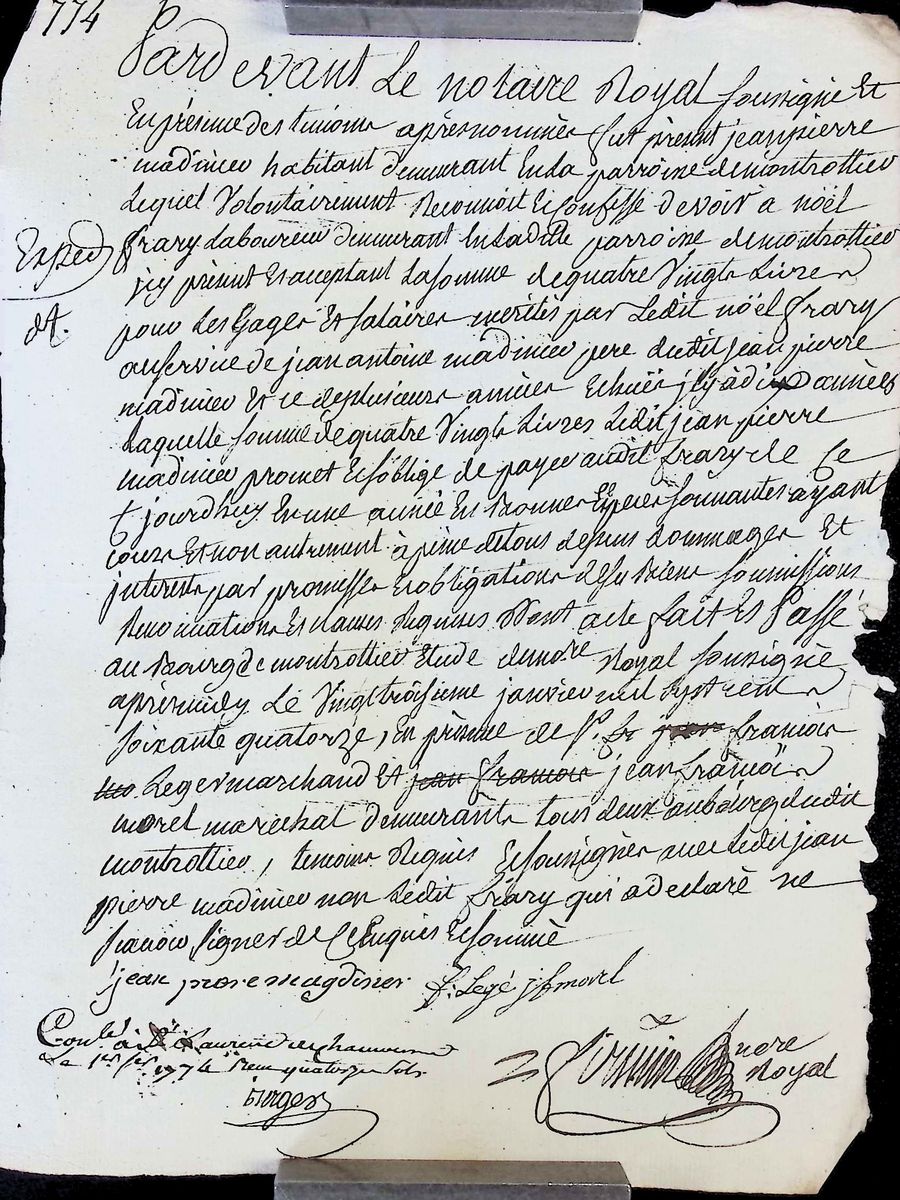 774
Pardevant Le notaire Royal soussigné Et
En présence des temoins aprésnommés fut présent jean pierre
madinier habitant demeurant En La parroisse de montrottier
Lequel Volontairement Reconnoit Et Confesse devoir a nöel
frary Laboureur demeurant En Ladite parroisse de montrottier
Expéd
jcy présent Et acceptant La somme de quatre Vingts Livres
pour Les Gages Et salaires mérités par Ledit nöel frary
dt.
au service de jean antoine madinier pere dudit jean pierre
madinier Et ce de plusieurs années Echues jl y à dix années
Laquelle somme de quatre Vingts Livres Ledit jean pierre
madinier promet Et s'oblige de payer audit frary de Ce
jourdhuy En une année En Bonnes Espéces sonnantes ayant
cours Et non autrement à peine de tous depens dommages Et
jnterets par promesses Et obligations de ses Biens soumissions
Renonciations Et clauses Requises Dont acte fait Et Passé
au Bourg de montrottier Etude du nore Royal soussigné
aprés midy Le Vingt troisieme janvier mil sept cent
soixante quatorze, En présence de Sr. fr jean francois
Leger marchand Et jean francois jean francois
morel marechal demeurants tous deux au bourg dudit
montrottier, temoins Requis Et soussignés avec Ledit jean
pierre madinier non Ledit frary qui a declaré ne
scavoir signer de Ce Enquis Et sommé
jean piere magdinier f. Legé j f morel
Conlé à St Laurent de chamousset
Le 1er fer 1774 Reçu quatorze sols
nore
Royal